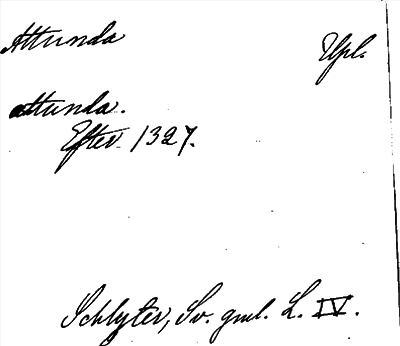 Attunda Upl.
attunda.
Efter 1327.
Schlyter, Sv. gml. L. IV.